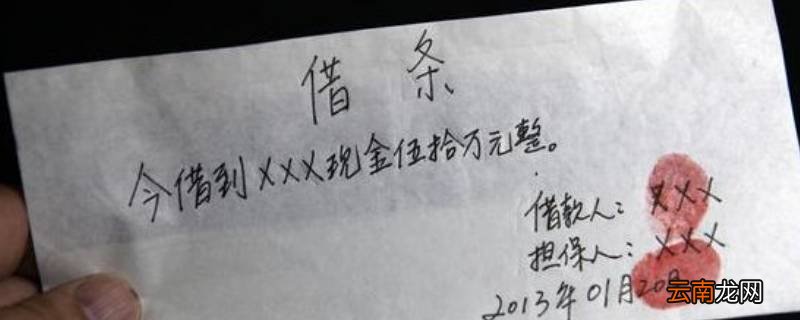 借 条
今借到XXX现金伍拾万元整。
借款人：XXX
担保人：XXX
2013年01月20日
云南龙网